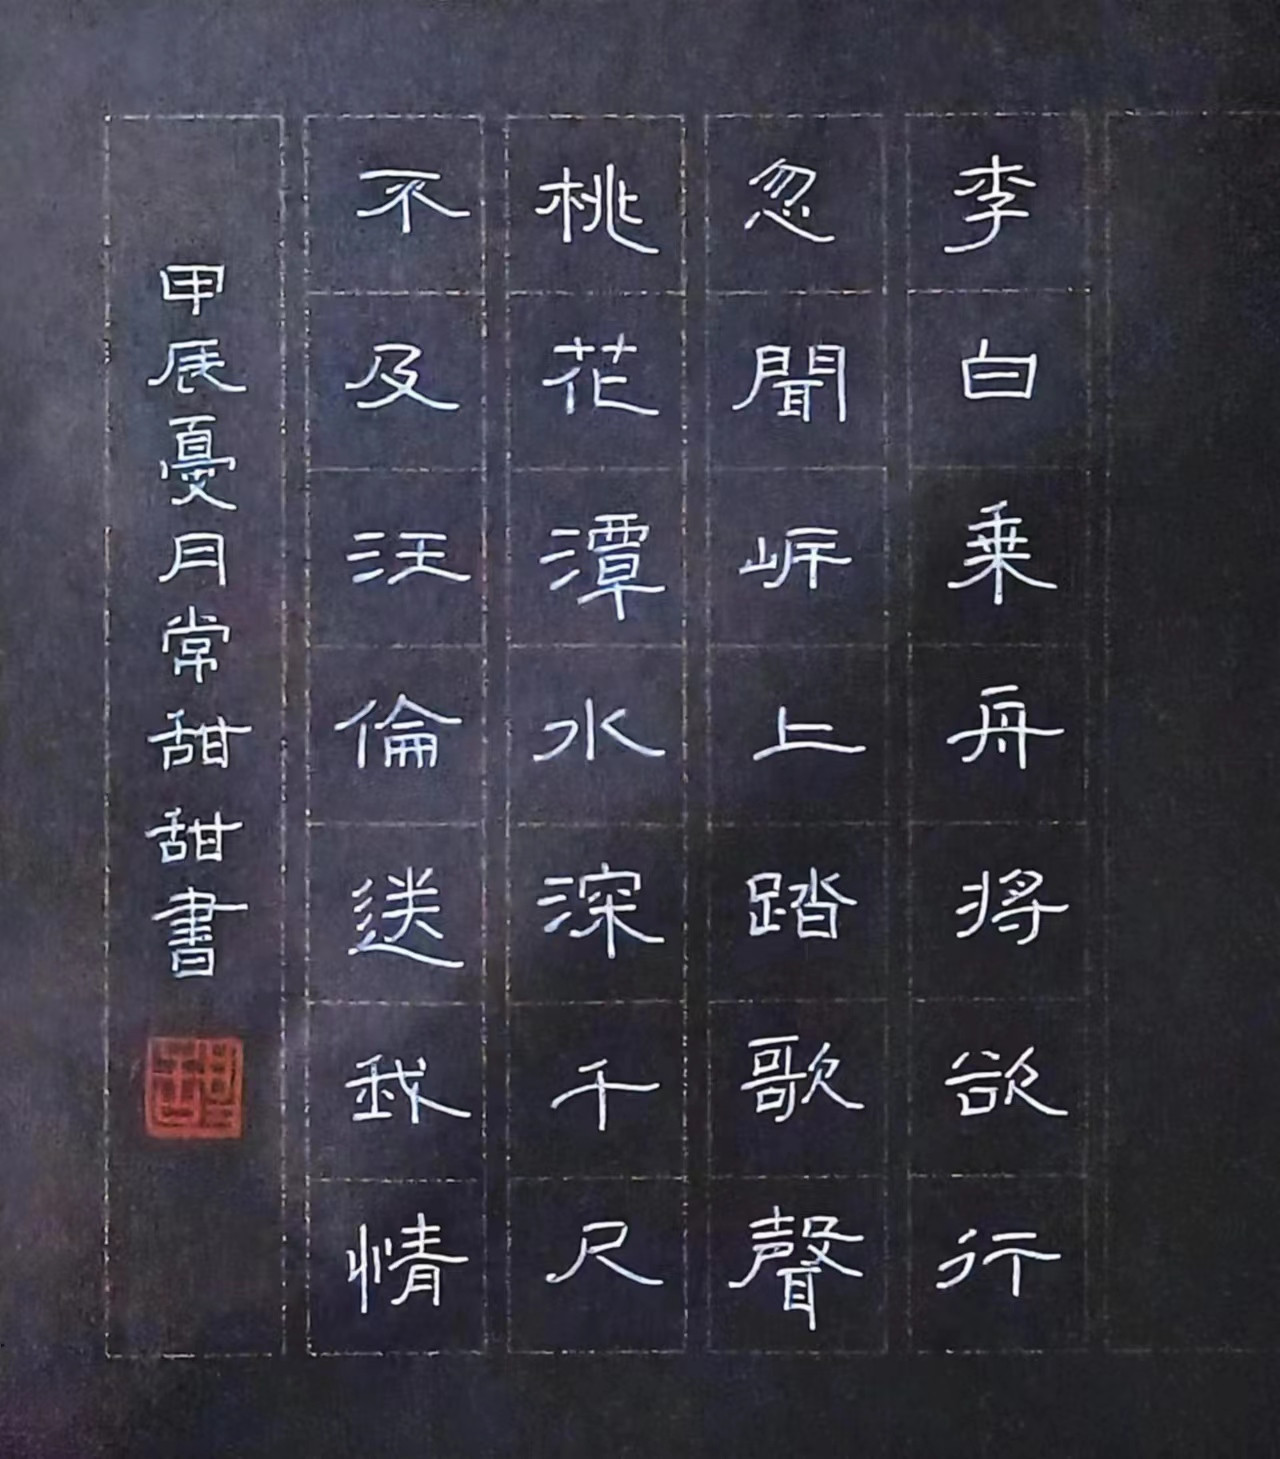 李白乗舟将欲行
忽聞岍上踏歌聲
桃花潭水深千尺
不及汪倫送我情
甲辰憂月常甜甜書